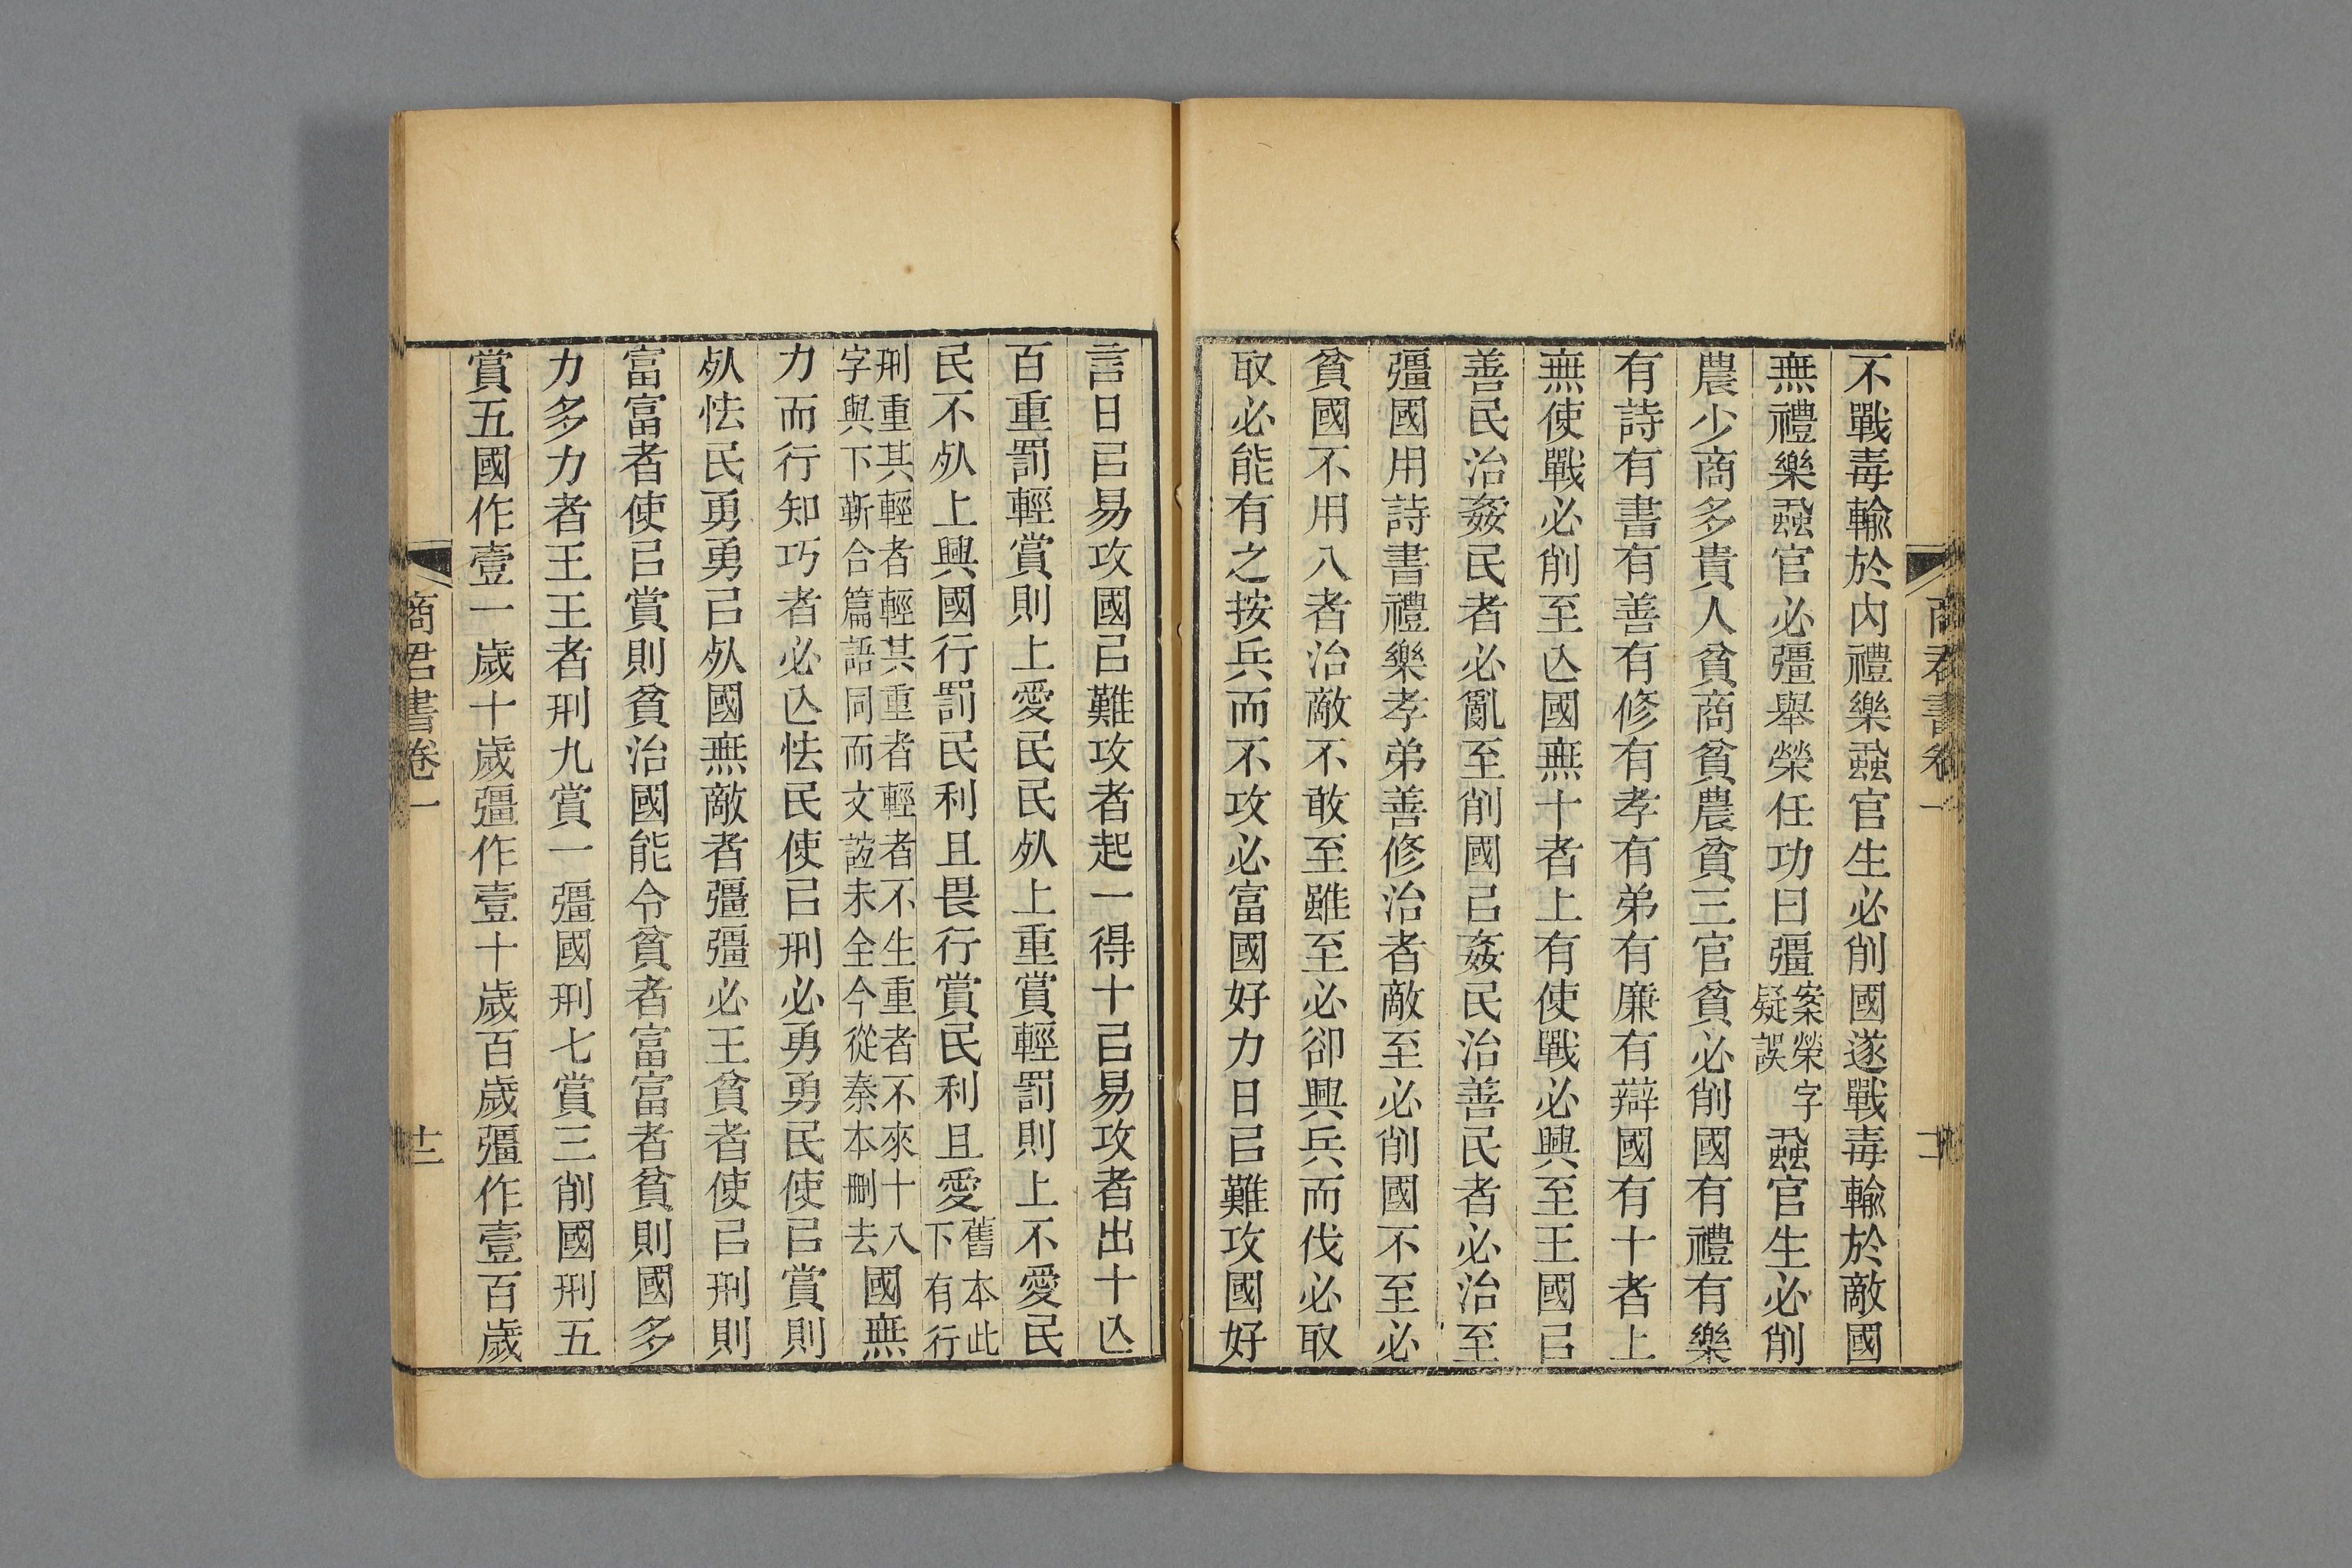 商君書卷一
不戰毒輸於內禮樂蝨官生必削國遂戰毒輸於敵國
無禮樂蝨官必彊舉榮任功曰彊案榮字疑誤蝨官生必削
農少商多貴人貧商貧農貧三官貧必削國有禮有樂
有詩有書有善有修有孝有弟有廉有辯國有十者上
無使戰必削至亾國無十者上有使戰必興至王國㠯
善民治姦民者必亂至削國㠯姦民治善民者必治至
彊國用詩書禮樂孝弟善修治者敵至必削國不至必
貧國不用八者治敵不敢至雖至必卻興兵而伐必取
取必能有之按兵而不攻必富國好力日㠯難攻國好
言日㠯易攻國㠯難攻者起一得十㠯易攻者出十亾
百重罰輕賞則上愛民民𣦸上重賞輕罰則上不愛民
民不𣦸上興國行罰民利且畏行賞民利且愛舊本此下有行
刑重其輕者輕其重者輕者不生重者不來十八字與下靳合篇語同而文誼未全今從秦本刪去國無
力而行知巧者必亾怯民使㠯刑必勇勇民使㠯賞則
𣦸怯民勇勇㠯𣦸國無敵者彊彊必王貧者使㠯刑則
富富者使㠯賞則貧治國能令貧者富富者貧則國多
力多力者王王者刑九賞一彊國刑七賞三削國刑五
賞五國作壹一歲十歲彊作壹十歲百歲彊作壹百歲
商君書卷一
十二